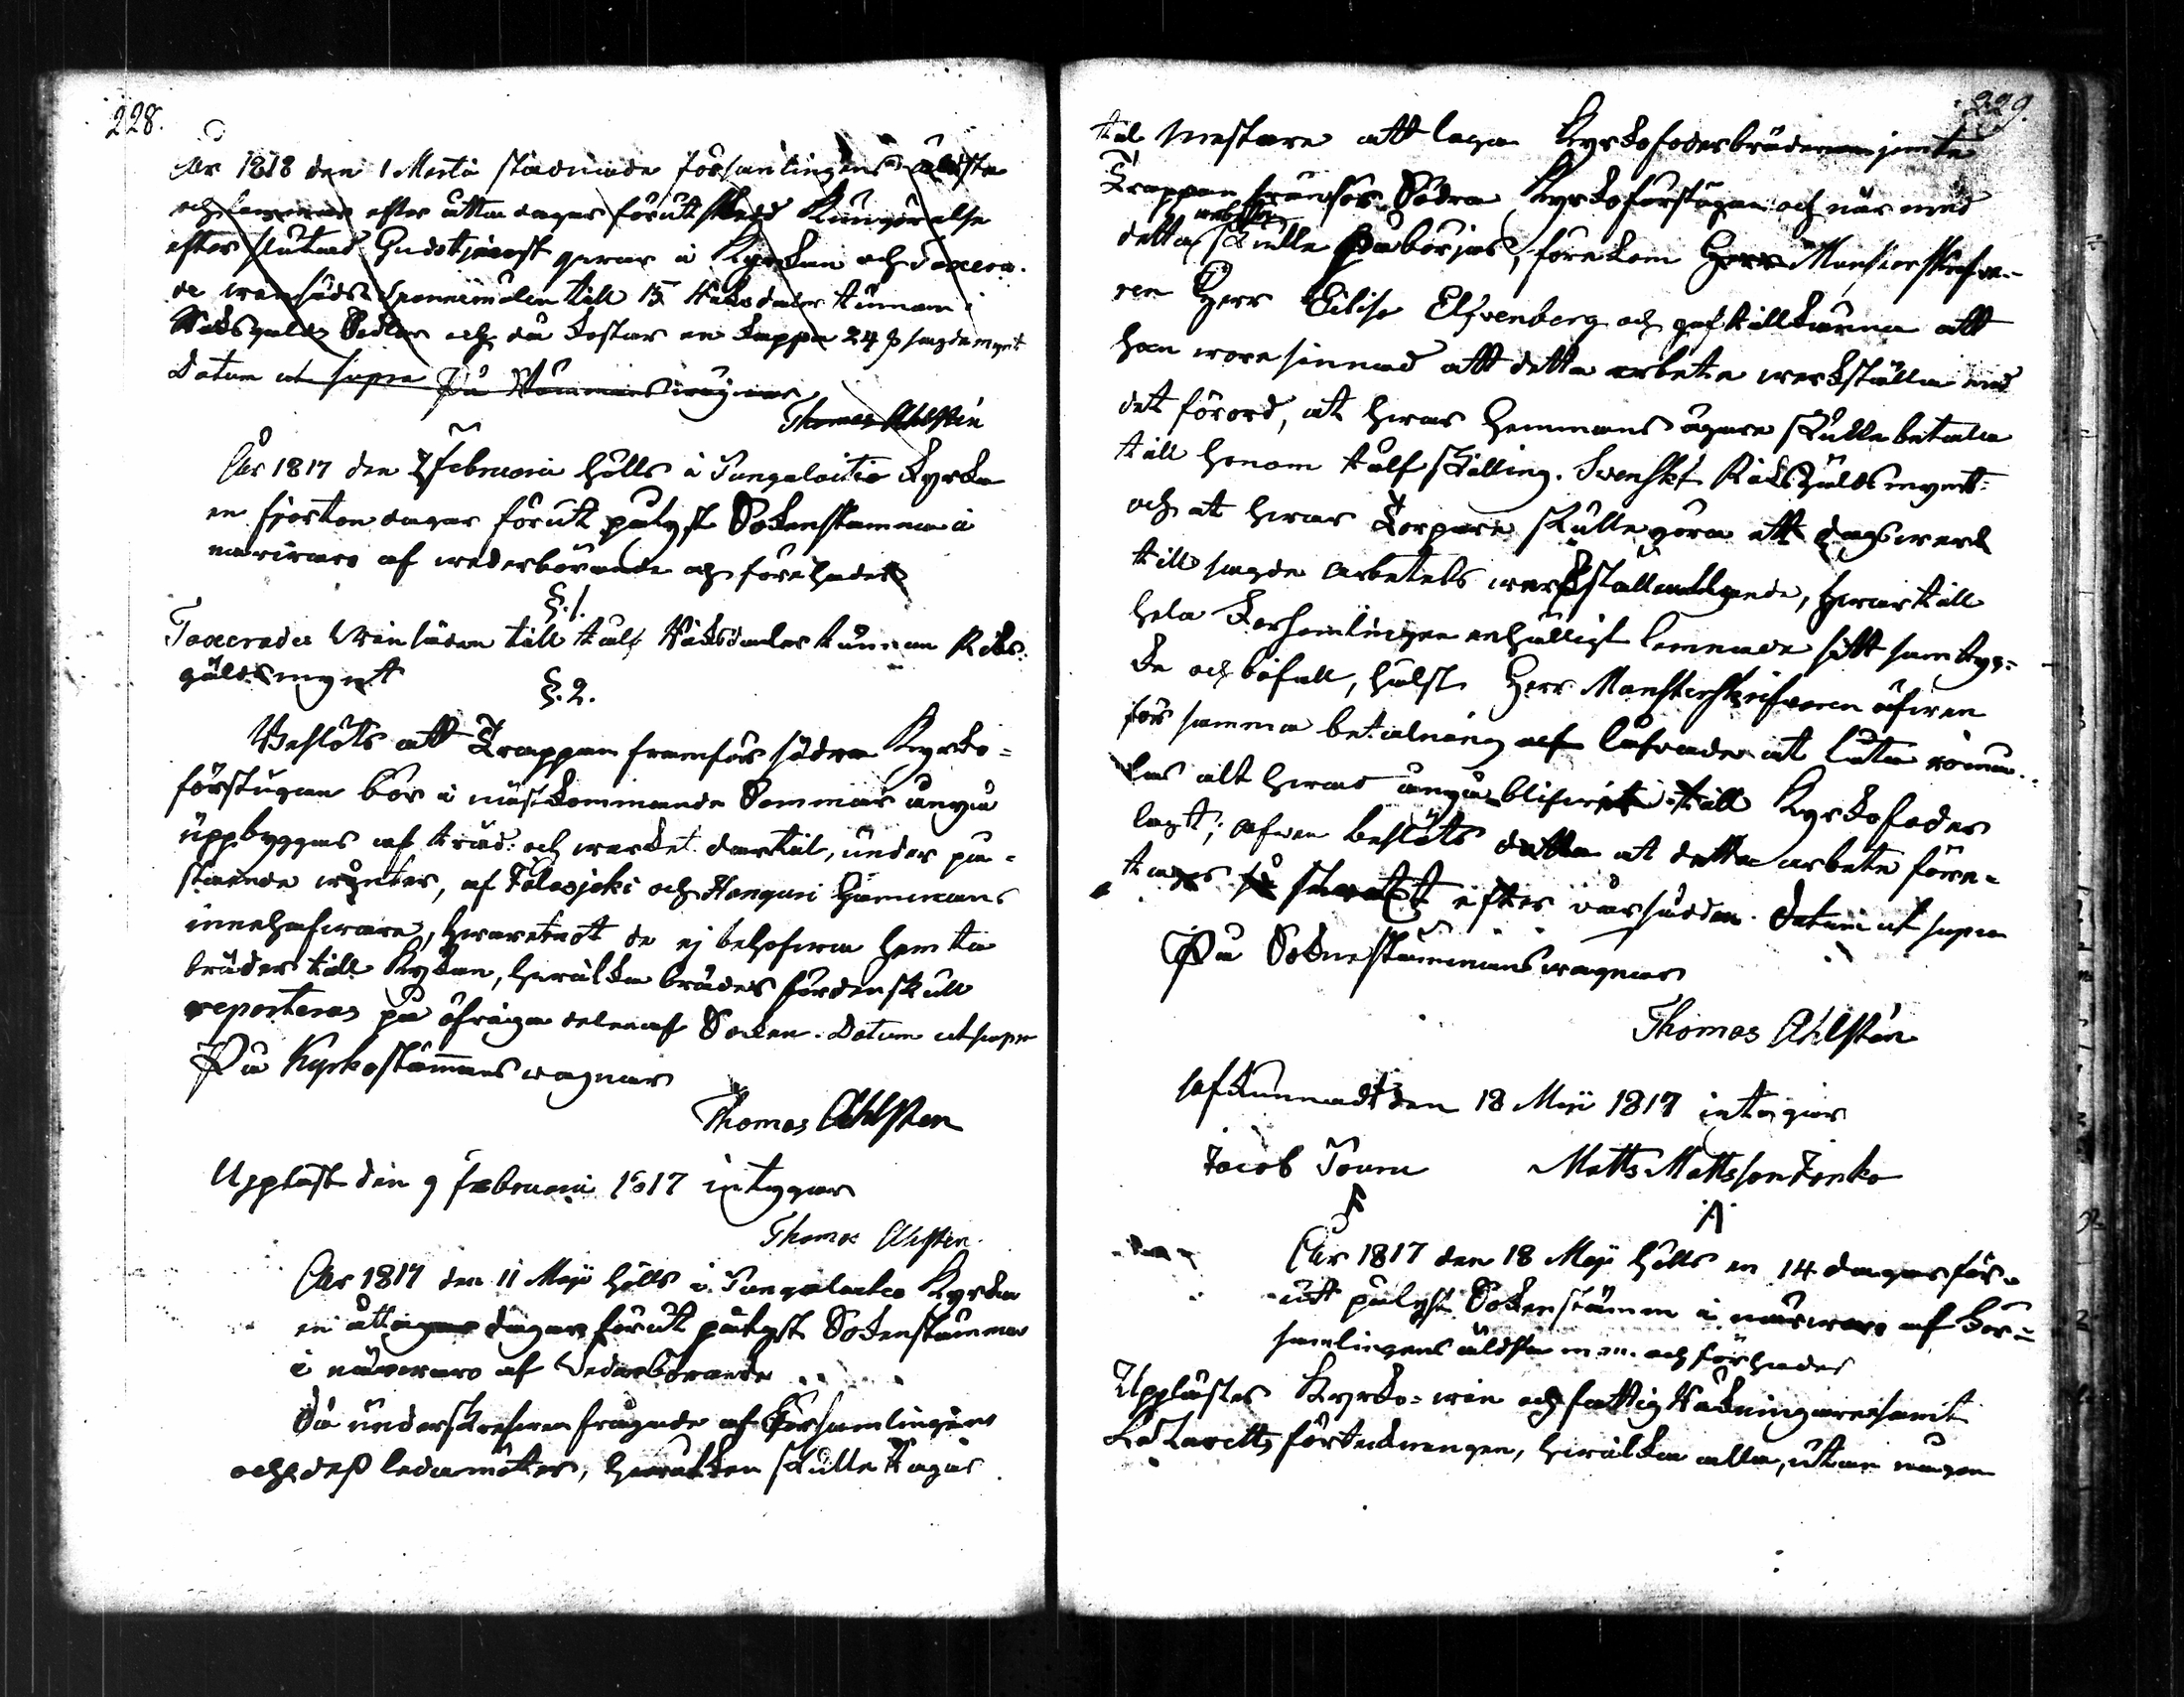 228.
År 1818 den 1 Martii stadnade församlingens äldste
och efter åtta dagar förutskedd Kungörelse
efter slutad Gudstjenst qvar i Kyrkan och Taxera-
de till 15 Riksdaler tunnan i
Riksgälds Sedlar och då kostar en kappa 24 s sagde mynt
Datum ut supra På Stämmans wägnar
Thomas Ahlsten
År 1817 den 2 Februarii hölls i Pungalaitio Kyrka
en fjorton dagar förut pålyst Sockenstämma i
närwaro af wederbörande och förehades
§. 1.
Taxerades Winsäden till tolf Riksdaler tunnan Riks-
gäldsmynt
§. 2.
Beslöts att Trappan framför södra Kyrko=
förstugan bör i nästkommande Sommar ånyo
uppbyggas af träd: och warket dertil, under på=
stående winter, af Talasjoki och Hanguri Hemmans
innehafware, hwaremot de ej behöfwa hemta
bräder till Kyrkan, hwilka bräder fördenskull
reporteras på öfriga delen af Socken. Datum ut supra
På Kyrkostämmans wägnar
Thomas Ahlsten
Upplast den 9 februarii 1817 intygar
Thomas Ahlsten
År 1817 den 11 Maji hölls i Pungalaitio Kyrka
en åtta dagar förut pålyst Sockenstämma
i närwaro af Wederbörande
Då underskrefwen frågade af Församlingens
och dess ledamöter, hwilken skulle tagas
229.
til Mestare att laga Kyrkofoderbräderna jemte
Trappan framför Södra Kyrkoförstugan och när med
detta skulle påbörjas, förekom Herr Mönsterskrifwa-
ren Herr Elis Elfvenberg och gaf tillkänna att
han wore sinnad att detta arbete werkställa med
det förord, at hwar Hemmans ägare skulle betala
till honom tolf skilling. Swenskt Riksgäldsmynt:
och at hwar Torpare skulle göra ett dagswerk
till sagde arbetets werkställande, hwartill
hela Forsamlingen enhälligt lemnade sitt samtyc=
ke och bifall, hälst Herr Mönsterskrifwaren äfwen
för samma betalning lofwade at låta rödmå-
las alt hwad ånyo blifwit till Kyrkofoder
lagt; äfwen beslöts at detta arbete före=
tages straxt efter wårsådden. Datum ut supra
På Sockenstämmans wägnar
Thomas Ahlsten
Afkunnadt den 18 Maji 1817 intygar
Jacob Matts Mattsson
År 1817 den 18 Maji hölls en 14 dagar för-
ut pålyst Sockenstämma i närwaro af För=
samlingens äldste män och förehades
Upplästes Kyrko= win och fattig Räkningarne samt
Lazaretts förteckningen, hwilka alla, utan någon